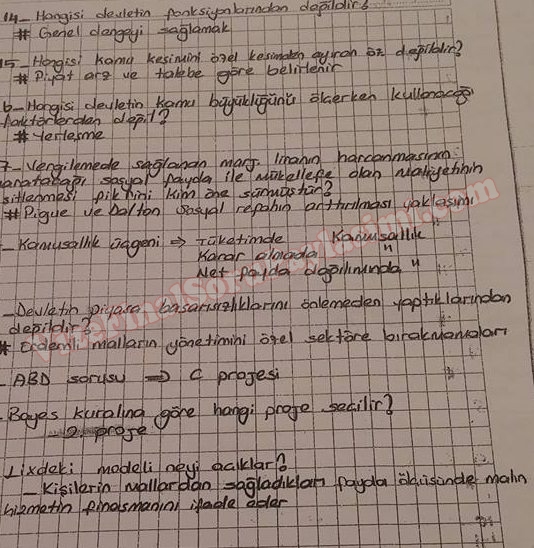 14- Hangisi devletin fonksiyonlarından değildir?
# Genel dengeyi sağlamak
15- Hangisi kamu kesimini özel kesimden ayıran öz değildir?
# Fiyat arz ve talebe göre belirlenir
6- Hangisi devletin kamu büyüklüğünü ölçerken kullanacağı
faktörlerden değil?
# Yerleşme
7- Vergilemede sağlanan marj. liranın harcanmasının
yaratacağı sosyal fayda ile mükellefe olan maliyetinin
eşitlenmesi fikrini kim öne sürmüştür?
# Pigue ve Dalton sosyal refahın arttırılması yaklaşımı
- Kamusallık üçgeni ⇒ Tüketimde Kamusallık
Karar almada "
Net fayda dağılımında "
- Devletin piyasa başarısızlıklarını önlemeden yaptıklarından
değildir?
* Erdemli malların yönetimini özel sektöre bırakmamaları
- ABD sorusu ⇒ C projesi
- Bayes kuralına göre hangi proje seçilir?
- 2. proje
Lixdeki modeli neyi açıklar?
- Kişilerin mallardan sağladıkları fayda ölçüsünde malın
hizmetin finasmanını ifade eder